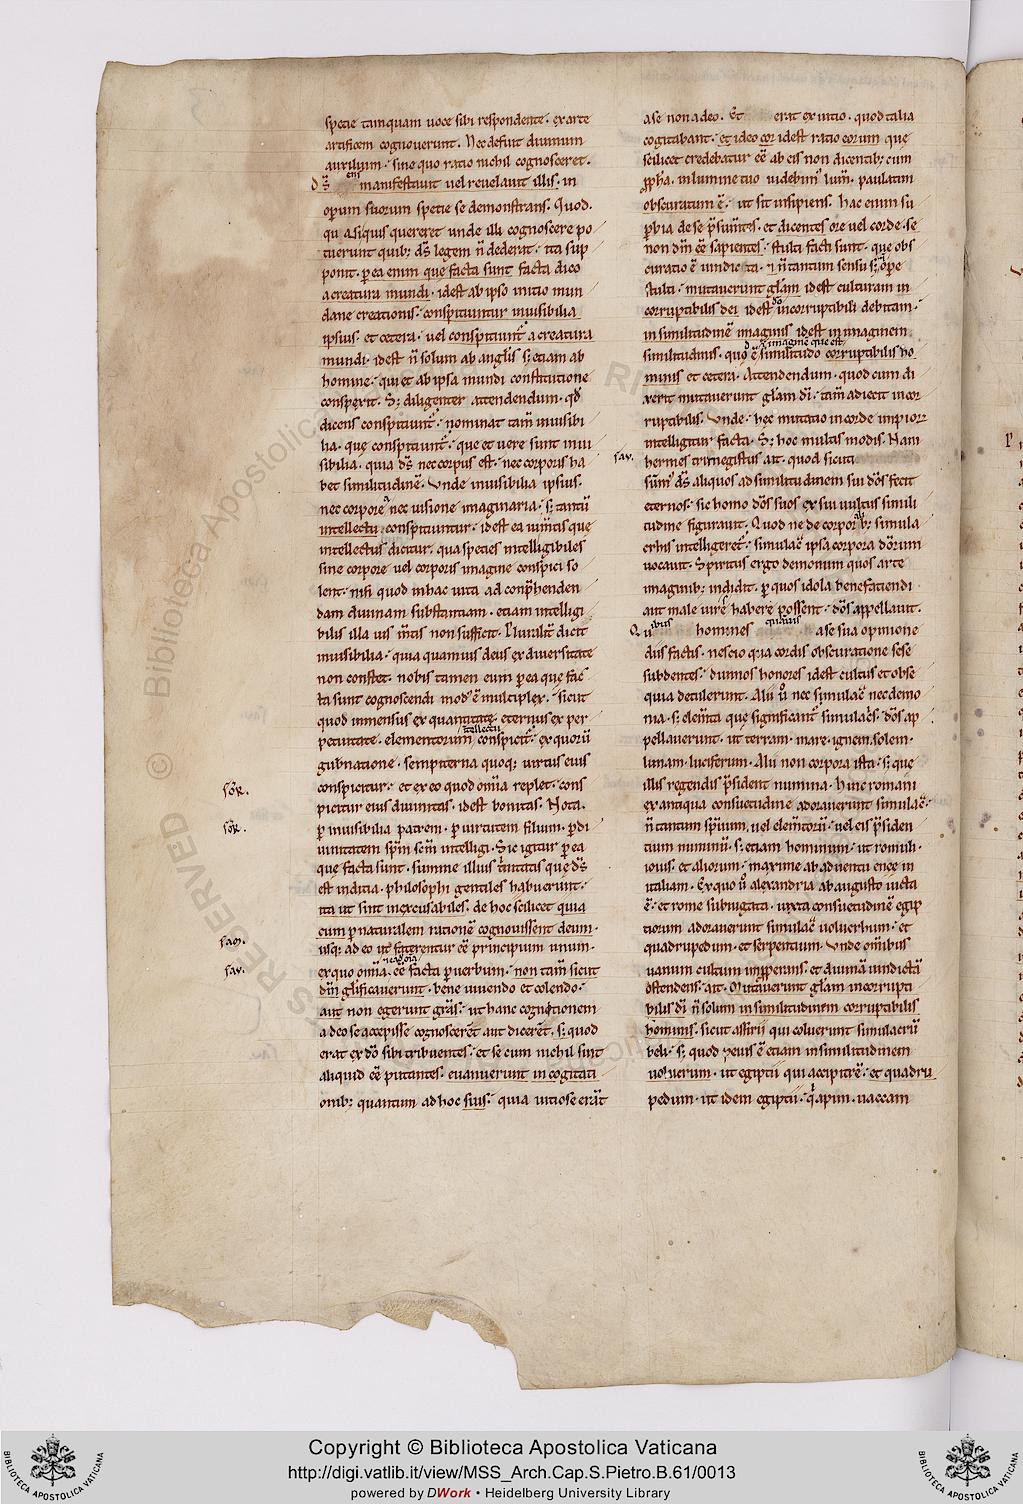 specie tamquam uoce sibi respondente. ex arte
artificem cognouerunt. Nec defuit diuinum
auxilium. sine quo ratio nichil cognosceret.
manifestauit uel reuelauit illis. in
operum suorum specie se demonstrans. Quod.
qui a si quis quereret unde illi cognoscere po
tuerunt quib; ds legem n dederat. ita sup
ponit. p ea enim que facta sunt facta dico
a creatura mundi. idest ab ipso initio mun
dane creationis. conspiciuntur inuisibilia
ipsius. et cetera. uel conspiciunt a creatura
mundi. idest n solum ab anglis s; etiam ab
homine. qui et ab ipsa mundi constitutione
conspexit. S; diligenter attendendum. qd
dicens conspiciunt. nominat tam inuisibi
lia. que conspiciunt. que et uere sunt inui
sibilia. quia ds nec corpus est. nec corporis ha
bet similitudine. Unde inuisibilia ipsius.
nec corpore nec uisione imaginaria. s; tantu
intellectu conspiciuntur. idest ea ui mtis que
intellectus dicitur. qua species intelligibiles
sine corpore uel corporis imagine conspici so
lent. nisi quod in hac uita ad conphenden
dam diuinam substantiam. etiam intelligi
bilis illa uis mtis non sufficit. Pluralit dicit
inuisibilia. quia quamuis deus ex diuersitate
non constet. nobis tamen eum p ea que fac
ta sunt cognoscendi mod e multiplex. sicut
quod inmensus ex quantitate. eternus ex per
petuitate. elementorum intellectu conspicit. ex quoru
gubnatione. sempiterna quoq; uirtus eius
conspicitur. et ex eo quod omia replet. cons
picitur eius diuinitas. idest bonitas. Nota.
p inuisibilia patrem. p uirtutem filium. p di
uinitatem spm scm intelligi. Sic igitur p ea
que facta sunt. summe illius trinitatis que ds
est inditia. philosophi gentiles habuerunt.
ita ut sint inexcusabiles. de hoc scilicet quia
cum p naturalem ratione cognouissent deum.
usq; ad eo ut faterentur ee principium unum.
ex quo omia ee facta p uerbum. non tam sicut
dm glificauerunt. bene uiuendo et colendo.
aut non egerunt gras. ut hanc cognitionem
a deo se accepisse cognoscerent aut dicerent. s; quod
erat ex do sibi tribuentes. et se cum nichil sint
aliquid ee putantes. euanuerunt in cogitati
onib; quantum ad hoc suis. quia uitiose erat
a se non a deo. Et erat ex initio. quod talia
cogitabant. et ideo cor idest ratio eorum que
scilicet credebatur ee ab eis non dicentib; cum
ppha. in lumine tuo uidebim lum. paulatim
obscuratum e. ut sit insipiens. hac enim su
pbia de se psumtes. et dicentes ore uel corde. se
non dm ee sapientes. stulti facti sunt. que obs
curatio e uindicta. n tantum sensu s; ope
stulti. mutauerunt glam idest culturam in
corruptibilis dei idest do incorruptibili debitam.
in similitudine imaginis idest in imaginem
similitudinis. quo e similitudo corruptibilis ho
minis et cetera. Attendendum. quod cum di
xerit mutauerunt glam di. tam adiecit incor
ruptibilis. Unde. hec mutatio in corde impior
intelligitur facta. S; hoc multis modis. Nam
hermes trimegistus ait. quod sicut
sum ds aliquos ad similitudinem sui dos fecit
eternos. sic homo dos suos ex sui uultus simili
tudine figurauit. Quod ne de corporib; simula
crhis intelligeret. simulac ipsa corpora dorum
uocauit. Spiritus ergo demonum quos arte
imaginib; indidit. p quos idola benefatiendi
aut male uires habere possent. dos appellauit.
Quibus homines quamuis a se sua opinione
diis factis. nescio qua cordis obscuratione sese
subdentes. diuinos honores idest cultus et obse
quia detulerunt. Alii u nec simulac nec demo
nia. s; elemta que significant simulacs. dos ap
pellauerunt. ut terram. mare. ignem. solem.
lunam. luciferum. Alii non corpora ista. s; que
illis regendis psident numina. hinc romani
ex antiqua consuetudine adorauerunt simulac.
n tantum spuum. uel elemtoru. uel eis psiden
tium numinu. s; etiam hominum. ut romuli.
iouis. et aliorum. maxime ab aduentu enee in
italiam. Ex quo u alexandria ab augusto uicta
e. et rome subiugata. iuxta consuetudine egip
tiorum adorauerunt simulac uolucrum. et
quadrupedum. et serpentium. Unde omibus
uanum cultum imperans. et diuina uindicta
ostendens. ait. Mutauerunt glam incorrupti
bilis di n solum in similitudinem corruptibilis
hominis. sicut assirii qui coluerunt simulacru
beli. s; quod peius e etiam in similitudinem
uolucrum. ut egiptii qui accipitre. et quadru
pedum. ut idem egiptii. q apim. uaccam
Copyright © Biblioteca Apostolica Vaticana
http://digi.vatlib.it/view/MSS_Arch.Cap.S.Pietro.B.61/0013
powered by DWork • Heidelberg University Library